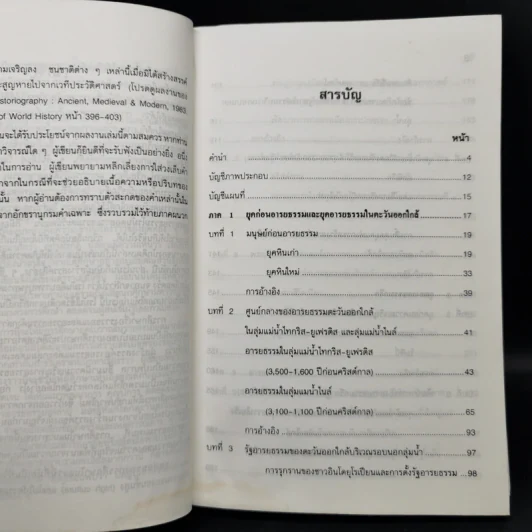 มเจริญลง ชนชาติต่าง ๆ เหล่านี้เมื่อมิได้สร้างสรรค์
ะสูญหายไปจากเวทีประวัติศาสตร์ (โปรดดูผลงานของ
storiography : Ancient, Medieval & Modern, 1983
of World History หน้า 396-403)
นจะได้รับประโยชน์จากผลงานเล่มนี้ตามสมควร หากท่าน
วิจารณ์ใด ๆ ผู้เขียนก็ยินดีที่จะรับฟังเป็นอย่างยิ่ง อนึ่ง
ในการอ่าน ผู้เขียนพยายามหลีกเลี่ยงการใส่วงเล็บคำ
กจากในกรณีที่จะช่วยอธิบายเนื้อความหรือปริบทของ
นั้น หากผู้อ่านต้องการทราบตัวสะกดของคำเหล่านี้นั้น
จากอักขรานุกรมคำเฉพาะ ซึ่งรวบรวมไว้ท้ายภาคผนวก
สารบัญ
หน้า
คำนำ 4
บัญชีภาพประกอบ 12
บัญชีแผนที่ 15
ภาค 1 ยุคก่อนอารยธรรมและยุคอารยธรรมในตะวันออกใกล้ 17
บทที่ 1 มนุษย์ก่อนอารยธรรม 19
ยุคหินเก่า 19
ยุคหินใหม่ 33
การอ้างอิง 39
บทที่ 2 ศูนย์กลางของอารยธรรมตะวันออกใกล้
ในลุ่มแม่น้ำไทกริส-ยูเฟรติส และลุ่มแม่น้ำไนล์ 41
อารยธรรมในลุ่มแม่น้ำไทกริส-ยูเฟรติส
(3,500-1,600 ปีก่อนคริสต์กาล) 43
อารยธรรมในลุ่มแม่น้ำไนล์
(3,100-1,100 ปีก่อนคริสต์กาล) 65
การอ้างอิง 93
บทที่ 3 รัฐอารยธรรมของตะวันออกใกล้บริเวณรอบนอกลุ่มน้ำ 97
การรุกรานของชาวอินโดยุโรเปียนและการตั้งรัฐอารยธรรม 98